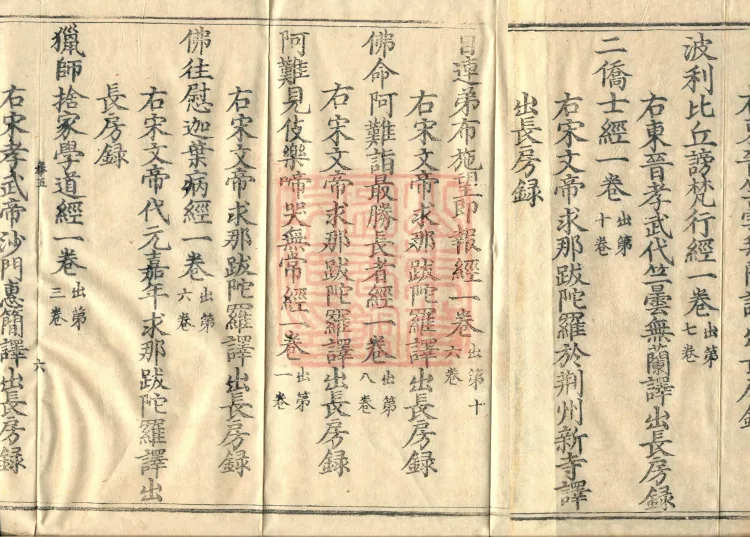 波利比丘謗梵行經一卷 出第七卷
右東晉孝武代竺曇無蘭譯出長房録
二僑士經一卷 出第十卷
右宋文帝求那跋陀羅於荆州新寺譯
出長房録
目連弟布施望即報經一卷 出第十六卷
右宋文帝求那跋陀羅譯出長房録
佛命阿難詣最勝長者經一卷 出第八卷
右宋文帝求那跋陀羅譯出長房録
阿難見伎樂啼哭無常經一卷 出第一卷
右宋文帝求那跋陀羅譯出長房録
佛往慰迦葉病經一卷 出第六卷
右宋文帝代元嘉年求那跋陀羅譯出
長房録
獵師捨家學道經一卷 出第三卷
右宋孝武帝沙門惠簡譯出長房録